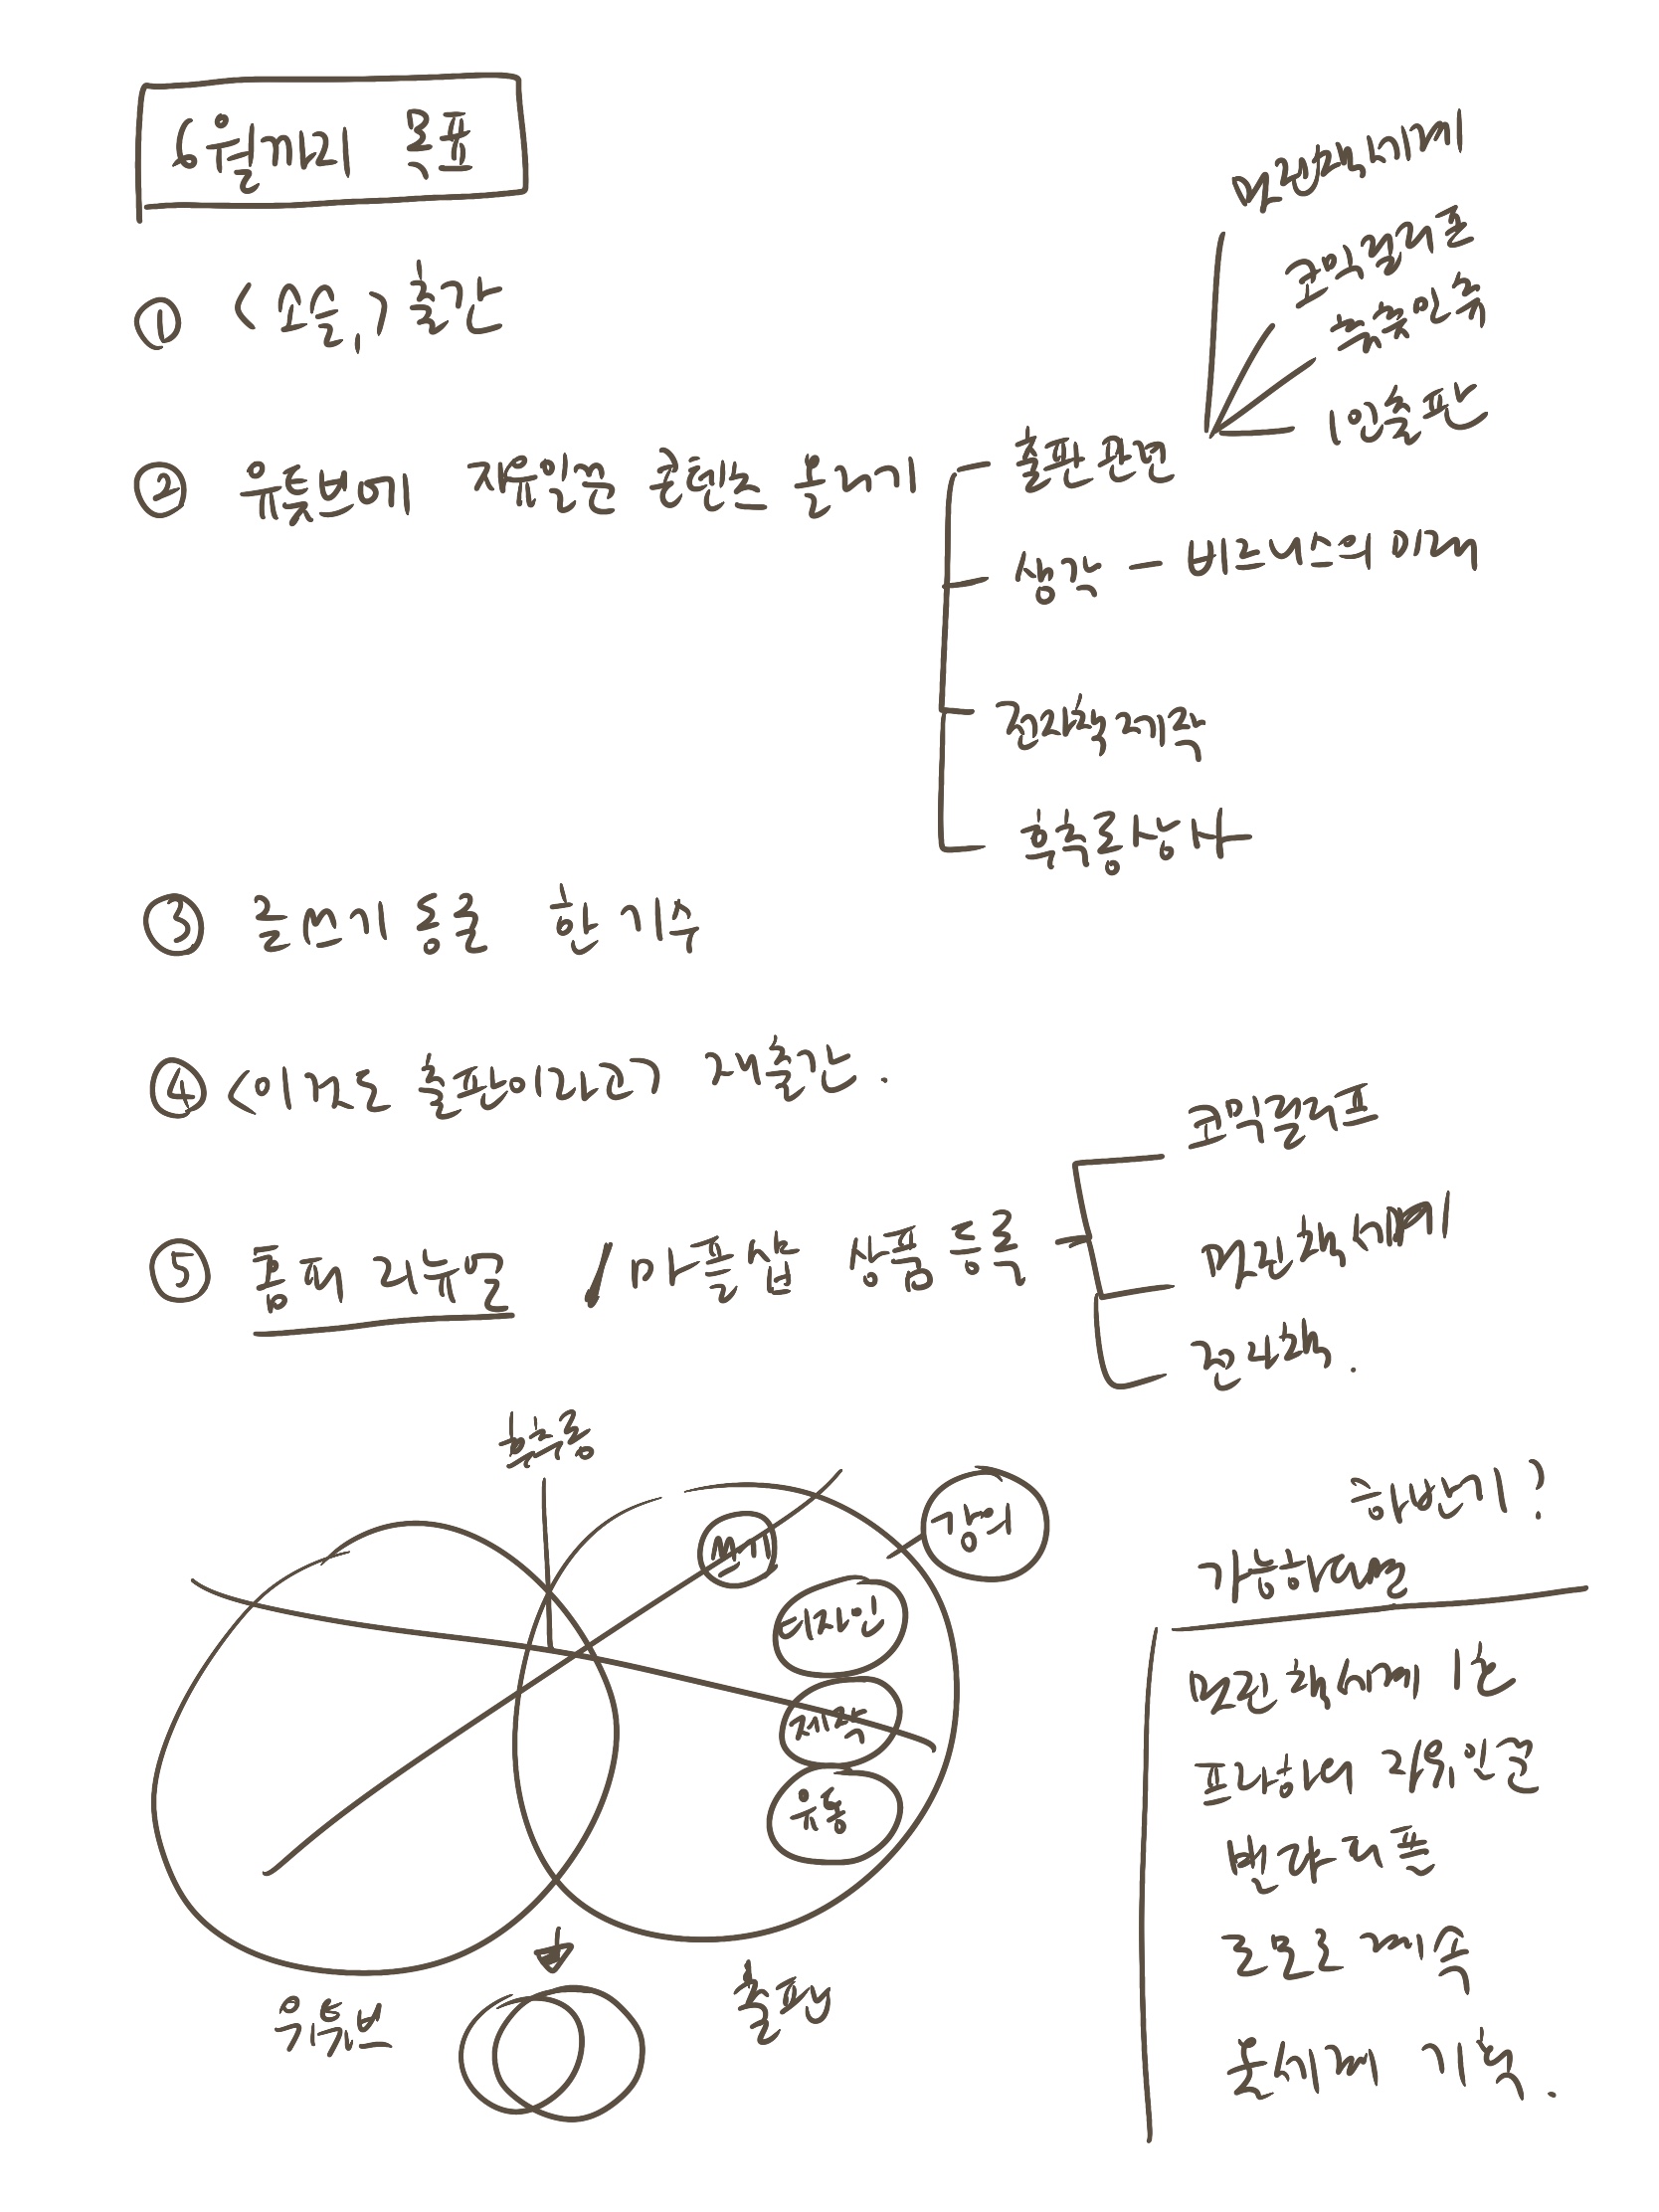 6월까지 목표
① <소슬,> 출간
② 유튜브에 자유일꾼 콘텐츠 올리기
출판관련
먼린책세계
코믹릴리프
축축인류
1인출판
생각 - 비즈니스의 미래
전자책 제작
후추롱상사
③ 글쓰기 동굴 한 기수
④ <이것도 출판이라고> 재출간.
⑤ 홈피 리뉴얼 / 마플샵 상품등록
코믹릴리프
먼린책세계
전자책.
후추롱
쓰기
강의
디자인
제작
유통
유튜브
출판
하반기?
가능하다면
먼린책세계 1호
프라하의 자유인꾼
번라리플
로모로 계속
굿세계 기획.